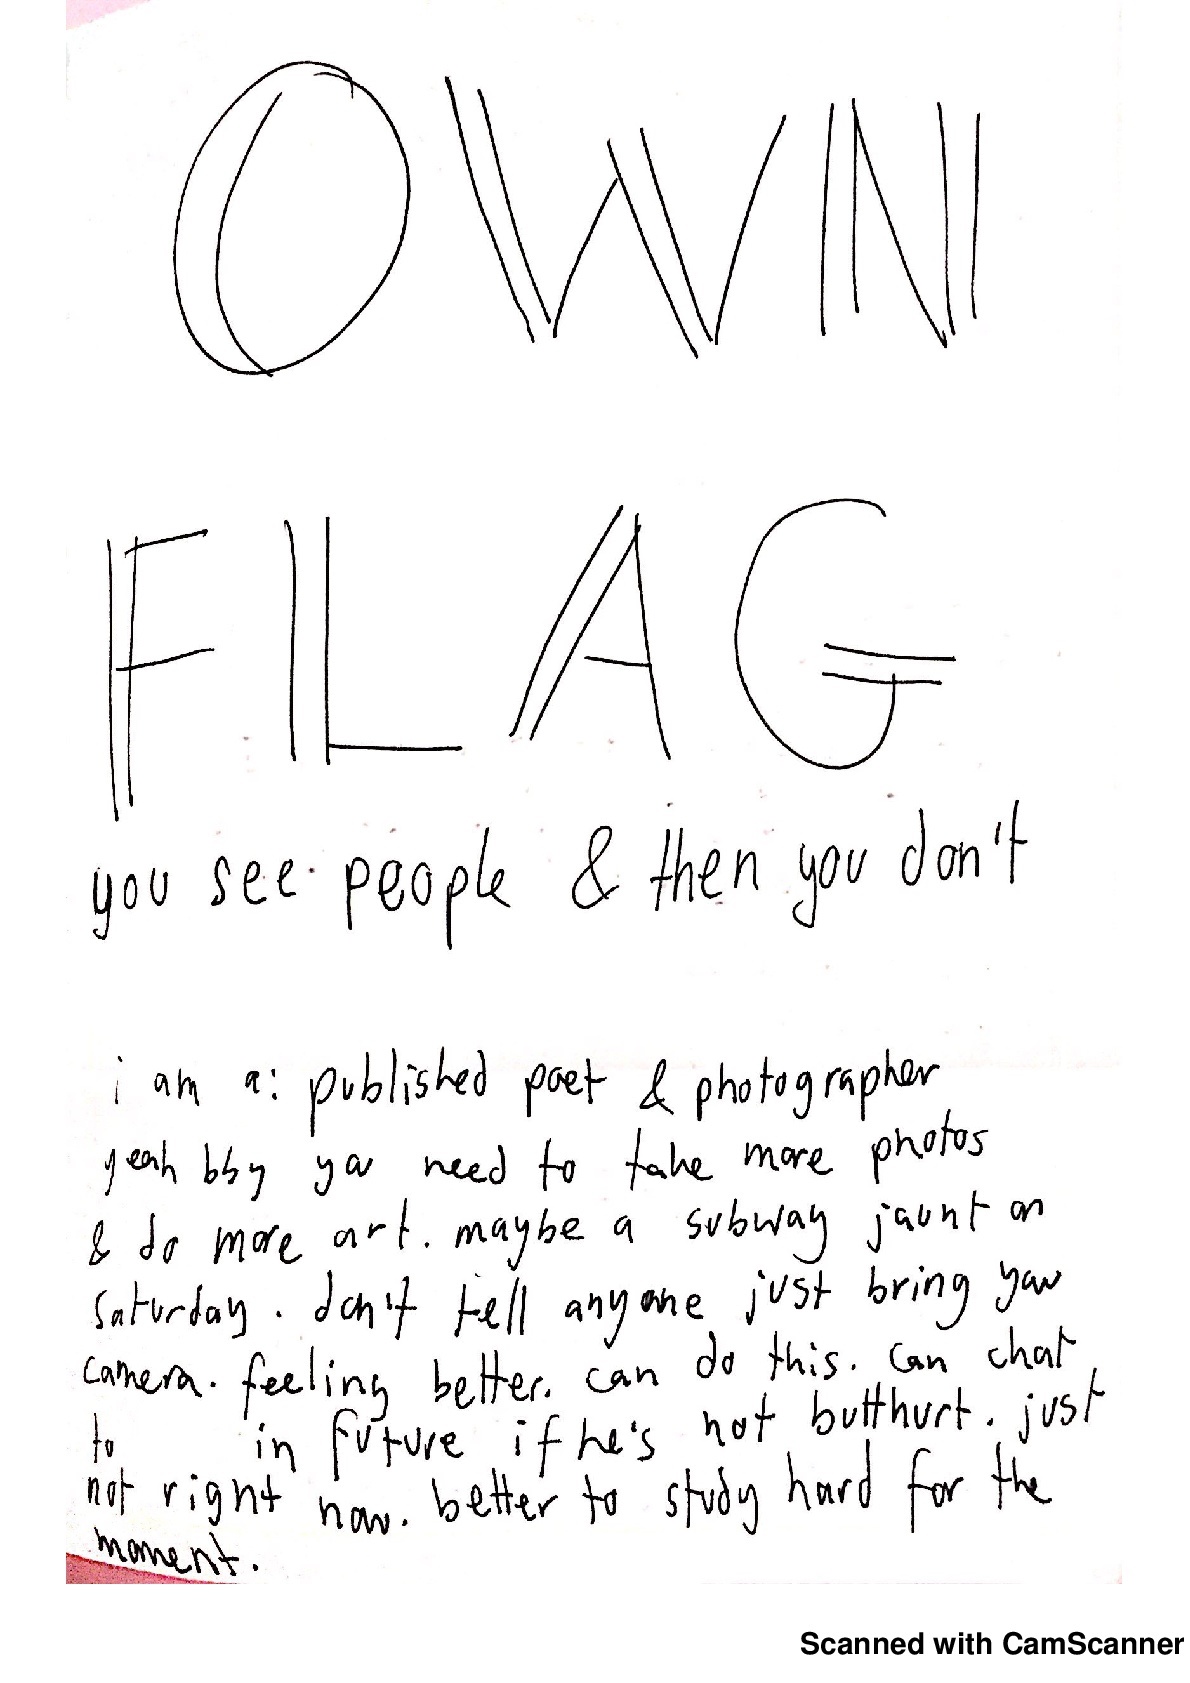 OWN
FLAG
you see people & then you don't
i am a: published poet & photographer
yeah bby ya need to take more photos
& do more art. maybe a subway jaunt on
saturday. don't tell anyone just bring yaw
camera. feeling better. can do this. can chat
to in future if he's not butthurt. just
not right now. better to study hard for the
moment.
Scanned with CamScanner